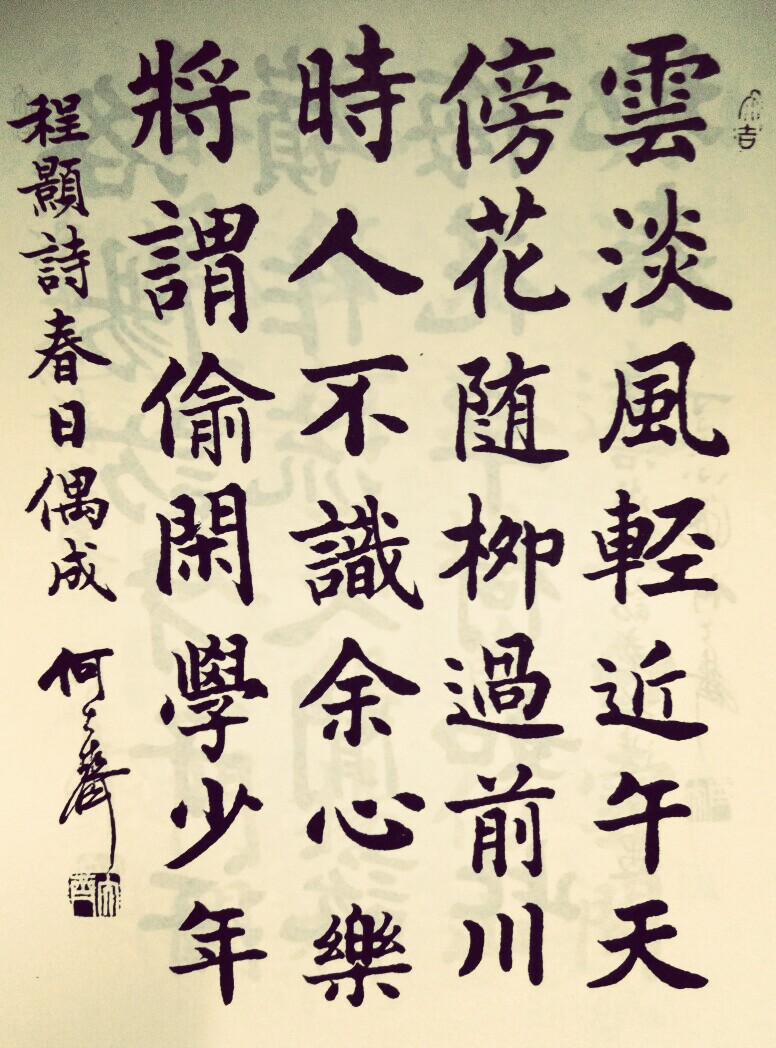 雲淡風輕近午天
傍花随柳過前川
時人不識余心樂
將謂偷閑學少年
程顥詩春日偶成
何